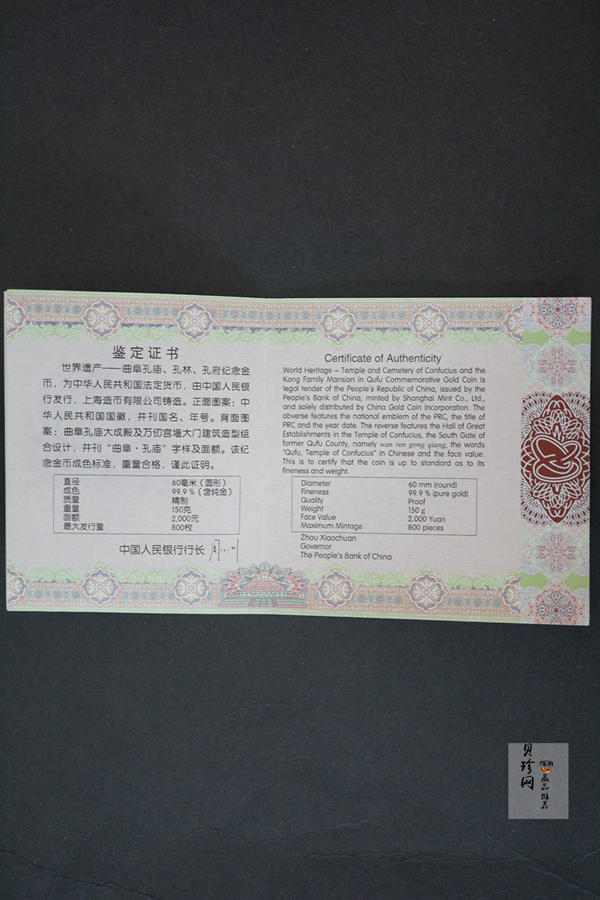 鉴定证书
世界遗产——曲阜孔庙、孔林、孔府纪念金
币，为中华人民共和国法定货币，由中国人民银
行发行，上海造币有限公司铸造。正面图案：中
华人民共和国国徽，并刊国名、年号。背面图
案：曲阜孔庙大成殿及万仞宫墙大门建筑造型组
合设计，并刊“曲阜·孔庙”字样及面额。该纪
念金币成色标准，重量合格，谨此证明。
直径 60毫米（圆形）
成色 99.9%（含纯金）
质量 精制
重量 150克
面额 2,000元
最大发行量 800枚
中国人民银行行长
Certificate of Authenticity
World Heritage – Temple and Cemetery of Confucius and the
Kong Family Mansion in Qufu Commemorative Gold Coin is
legal tender of the People's Republic of China, issued by the
People's Bank of China, minted by Shanghai Mint Co., Ltd.,
and solely distributed by China Gold Coin Incorporation. The
obverse features the national emblem of the PRC, the title of
PRC and the year date. The reverse features the Hall of Great
Establishments in the Temple of Confucius, the South Gate of
former Qufu County, namely wan ren gong qiang, the words
"Qufu, Temple of Confucius" in Chinese and the face value.
This is to certify that the coin is up to standard as to its
fineness and weight.
Diameter 60 mm (round)
Fineness 99.9 % (pure gold)
Quality Proof
Weight 150 g
Face Value 2,000 Yuan
Maximum Mintage 800 pieces
Zhou Xiaochuan
Governor
The People's Bank of China
贝珍网
藏品推荐